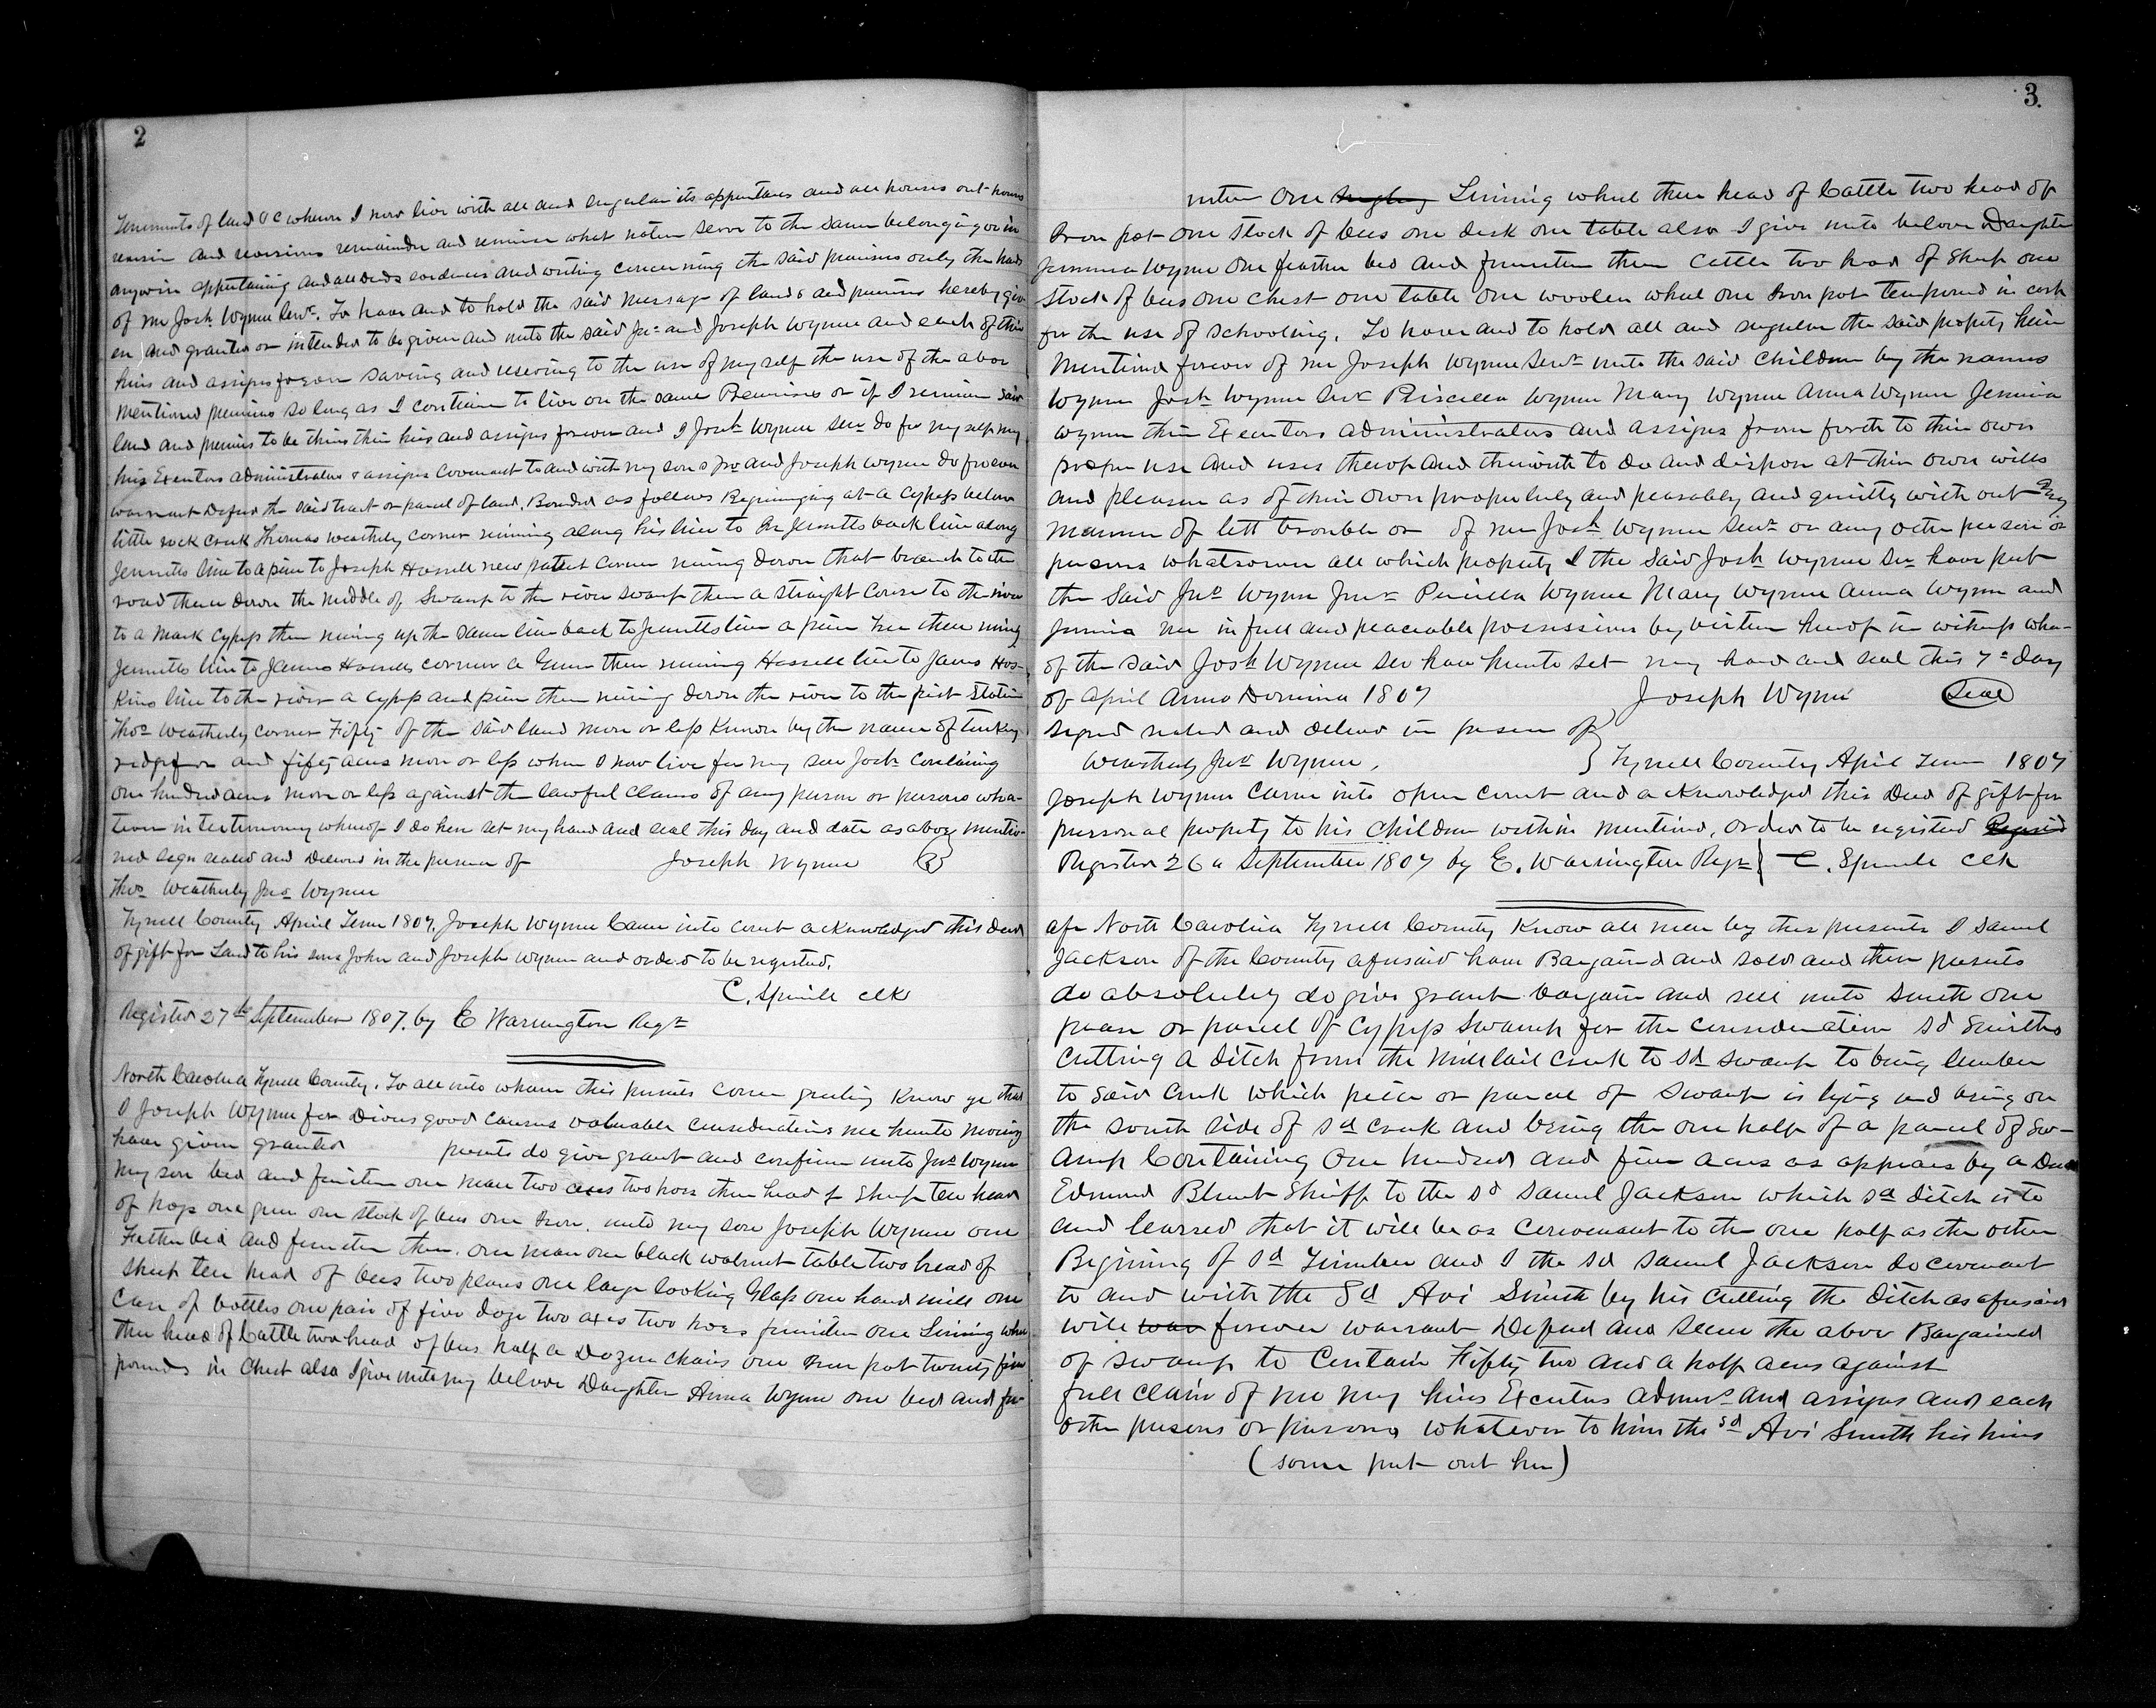 2
Teniments of land &C wheren I now live with all and singular its appurtanes and all houses out-houses
revisin and reversions remainder and reminis what natur sever to the same belonging or in
anywise appertaining and all deeds evidences and writing concerning the said premises only the hands
of me Josh Wynne Senr. To have and to hold the said messuage of lands and premises hereby giv
en and granted or intended to be given and unto the said Jno and Joseph Wynne and each of this
hirs and assigns forever saving and reserving to the use of my self the use of the abov
mentioned premises so long as I continue to live on the same Premises or if I remove said
land and premis to be theirs their hirs and assigns forever and I Josh Wynne Senr do for my self my
hirs Exentors administrators & assigns covenant to and with my sons Jno and Joseph Wynne do forever
warrant Defend the said tract or parcel of land. Bounded as follows Beginninging at a Cypress below
little rock creek Thomas Weatherly corner running along his line to Jennetts back line along
Jennetts line to a pine to Joseph Hassell new patent corner runing down that branch to the
road thence down the middle of Swamp to the river swamp then a straight Corse to the river
to a mark Cypress then runing up the same line back to Jennetts line a pine tree thence runing
Jennetts line to James Hassells corner a Gum then running Hassell line to James Hos-
kins line to the river a cypress and pine then runing down the river to the first station
Thos Weatherly corner Fifty of the said land more or less known by the name of turkey
ridge and fifty acres more or less where I now live for my son Josh Containing
one hundred acres more or less against the lawful claims of any person or persons wha-
tever in testimony whereof I do here set my hand and seal this day and date as above mentio-
ned sign sealed and Deliverd in the presence of Joseph Wynne
Thos Weatherly Jno Wynne
Tyrrell County April Term 1807. Joseph Wynne Came into court acknowledged this deed
of gift for Land to his sons John and Joseph Wynne and orderd to be registerd.
C. Spruill clk
Registerd 27th September 1807. by E Warrington Regr
North Carolina Tyrrell County. To all unto whom this presents come greeting Know ye that
I Joseph Wynne for Divers good causes valuable considerations me hereunto moving
have given granted presents do give grant and confirm unto Jno Wynne
my son bed and furniture one mare two axes two hoes three head of Sheep ten head
of hogs one gun one stock of bees one Iron. unto my son Joseph Wynne one
Feather bed and furniture then. one mare one black walnut table two head of
sheep ten head of bees two planes one large looking Glass one hand mill one
Case of bottles one pair of five doge two axes two hoes furniture one Linning wheel
three head of Cattle two head of bees half a Dozen chairs one Iron pot twenty five
pounds in Chest also I give unto my belove Daughter Anna Wynne one bed and fur-
3.
niture One Linning wheel three head of Cattle two head of
Iron pot one stock of bees one desk one table also I give unto belove Daughter
Jemima Wynne one feather bed and furniture three Cattle two head of Sheep one
stock of bees one chest one table one woolen wheel one Iron pot ten pound in cash
for the use of schooling. To have and to hold all and singular the said property hein
mentioned forever of me Joseph Wynne Senr unto the said children by the names
Wynne Josh Wynne Priscilla Wynne Mary Wynne Anna Wynne Jemima
Wynne their Executors administrators and assigns from forth to their own
proper use and uses thereof and therewith to do and dispose at their own wills
and pleasure as of their own properly and peasably and quitly with out any
manner of lett trouble or of me Josh Wynne Senr or any other person or
persons whatsoever all which property I the said Josh Wynne Sr have put
the said Jno Wynn Priscilla Wynne Mary Wynne Anna Wynn and
Jemima me in full and peaceable possession by virtue hereof in witness whe-
of the said Josh Wynne Ser have hereunto set my hand and seal this 7th day
of April Anno Domina 1807 Joseph Wynne Seal
signed sealed and deliverd in presen of
Weatherly Jno Wynne, } Tyrrell County April Term 1807
Joseph Wynne Came into open court and acknowledged this Deed of gift for
personal property to his children within mentioned, orderd to be registed
Registerd 26th September 1807 by E. Warrington Regr C. Spruill clk
afr North Carolina Tyrrell County Know all men by these presents I Samuel
Jackson of the County aforesaid have Bargained and sold and these presents
do absolutely do give grant bargain and sell unto Smith one
pease or parcel of Cypress Swamp for the consideration sd Smiths
cutting a ditch from the Mill tail creek to sd swamp to bring lumber
to said creek which peice or parcel of swamp is lying and being on
the south side of sd creek and being the one half of a parcel of Sw-
amp Containing One hundred and five acres as appears by a Deed
Edmund Blunt Shriff to the sd Samuel Jackson which sd ditch is to
and learsed that it will be as convenant to the one half as the other
Begining of sd Timber and I the sd Samuel Jackson do covenant
to and with the Sd Avi Smith by his cutting the ditch as aforesaid
will forever warrant Defend and secure the above Bargained
of swamp to Contain Fifty two and a half acres against
full claim of me my hirs Executors admrs and assigns and each
other persons or persons whatever to him the sd Avi Smith his hirs
(some put out here)